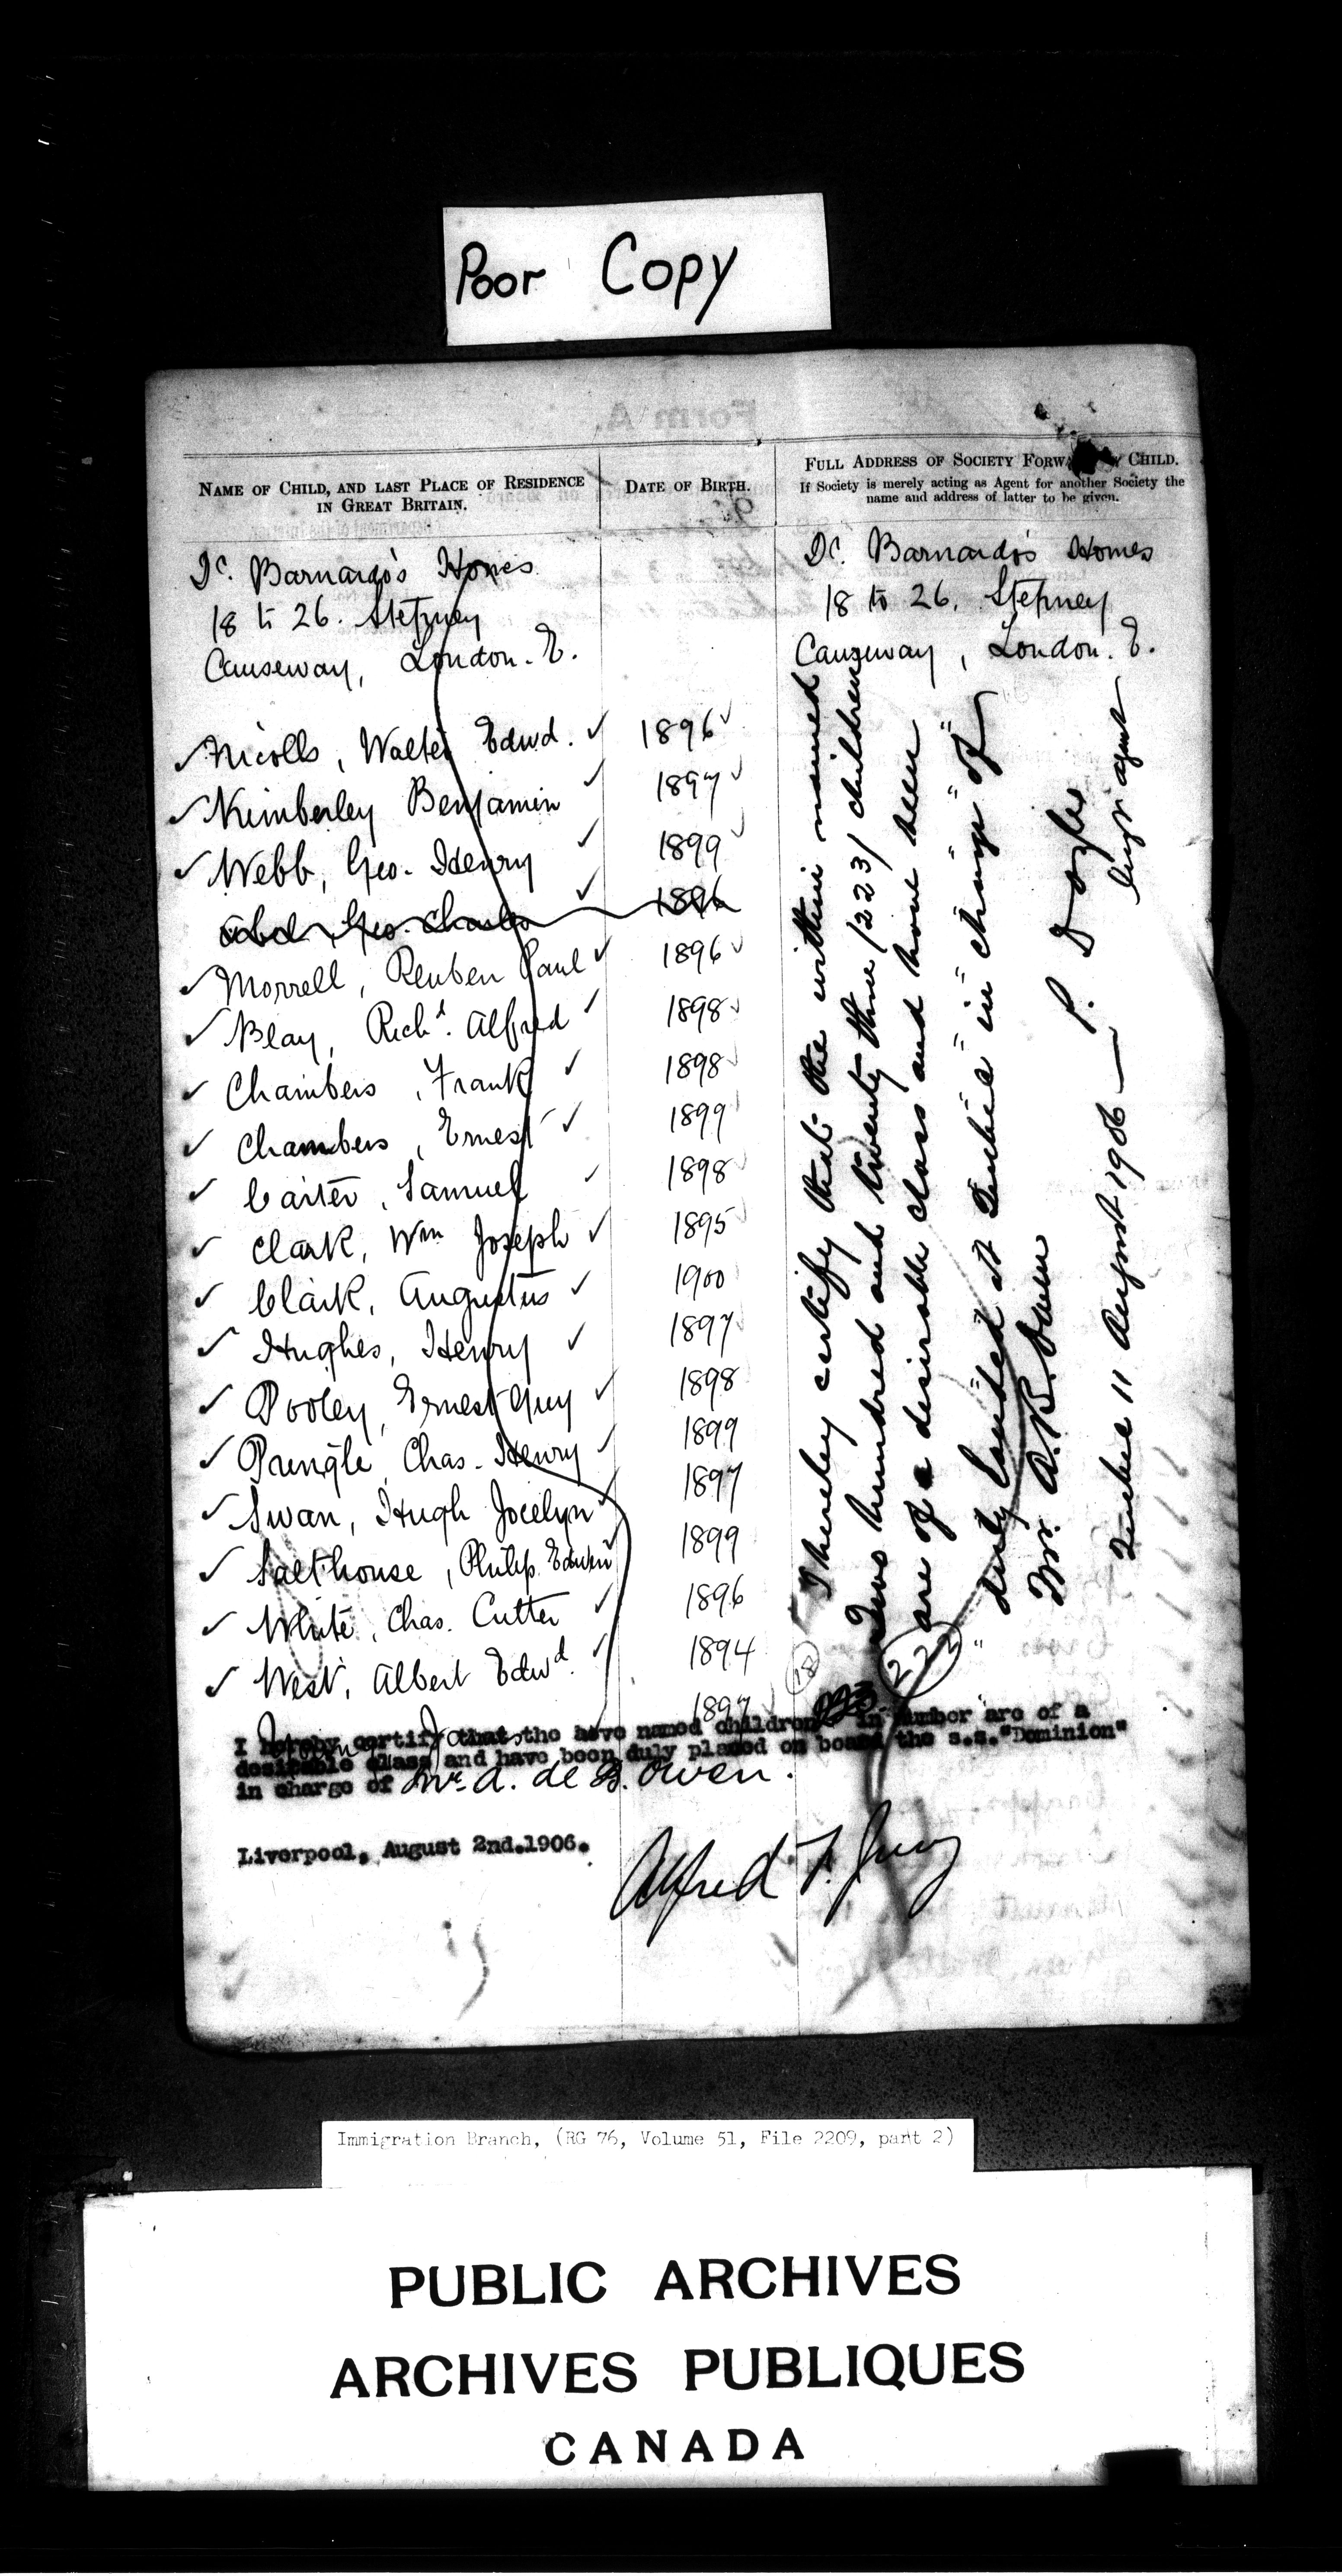 Poor Copy
Form A.
NAME OF CHILD, AND LAST PLACE OF RESIDENCE
IN GREAT BRITAIN.
DATE OF BIRTH.
FULL ADDRESS OF SOCIETY FORWARDING CHILD.
If Society is merely acting as Agent for another Society the
name and address of latter to be given.
Dr. Barnardo's Homes
18 to 26. Stepney
Causeway, London. E.
Dr. Barnardo's Homes
18 to 26. Stepney
Causeway, London. E.
✓ Nicolls, Walter Edwd. ✓ 1896 ✓
✓ Kimberley Benjamin ✓ 1897 ✓
✓ Webb, Geo. Henry ✓ 1899 ✓
Geo. Charles ✓ 1896
✓ Morrell, Reuben Paul ✓ 1896 ✓
✓ Blay, Richd. Alfred ✓ 1898 ✓
✓ Chambers, Frank ✓ 1898 ✓
✓ Chambers, Ernest ✓ 1899
✓ Carter, Samuel ✓ 1898 ✓
✓ Clark, Wm Joseph ✓ 1895 ✓
✓ Clark, Augustus ✓ 1900
✓ Hughes, Henry ✓ 1897 ✓
✓ Pooley, Ernest Guy ✓ 1898
✓ Pringle, Chas. Henry ✓ 1899
✓ Swan, Hugh Jocelyn ✓ 1897
✓ Salthouse, Philip Edwin 1899
✓ White, Chas. Cutter ✓ 1896
✓ West, Albert Edwd. ✓ 1894
James 1897 ✓
I hereby certify that the within named
Two hundred and twenty three /223/ children
are of a desirable class and have been
duly landed at Quebec " in " charge " of
Mr. A. B. Owen
Quebec 11 August 1906 — P. Doyle
Imgn agent
18
222
223
I hereby certify that the above named children in number are of a
desirable class and have been duly placed on board the s.s. "Dominion"
in charge of Mr. A. de B. Owen.
Liverpool, August 2nd.1906.
Alfred F. Jury
Immigration Branch, (RG 76, Volume 51, File 2209, part 2)
PUBLIC ARCHIVES
ARCHIVES PUBLIQUES
CANADA